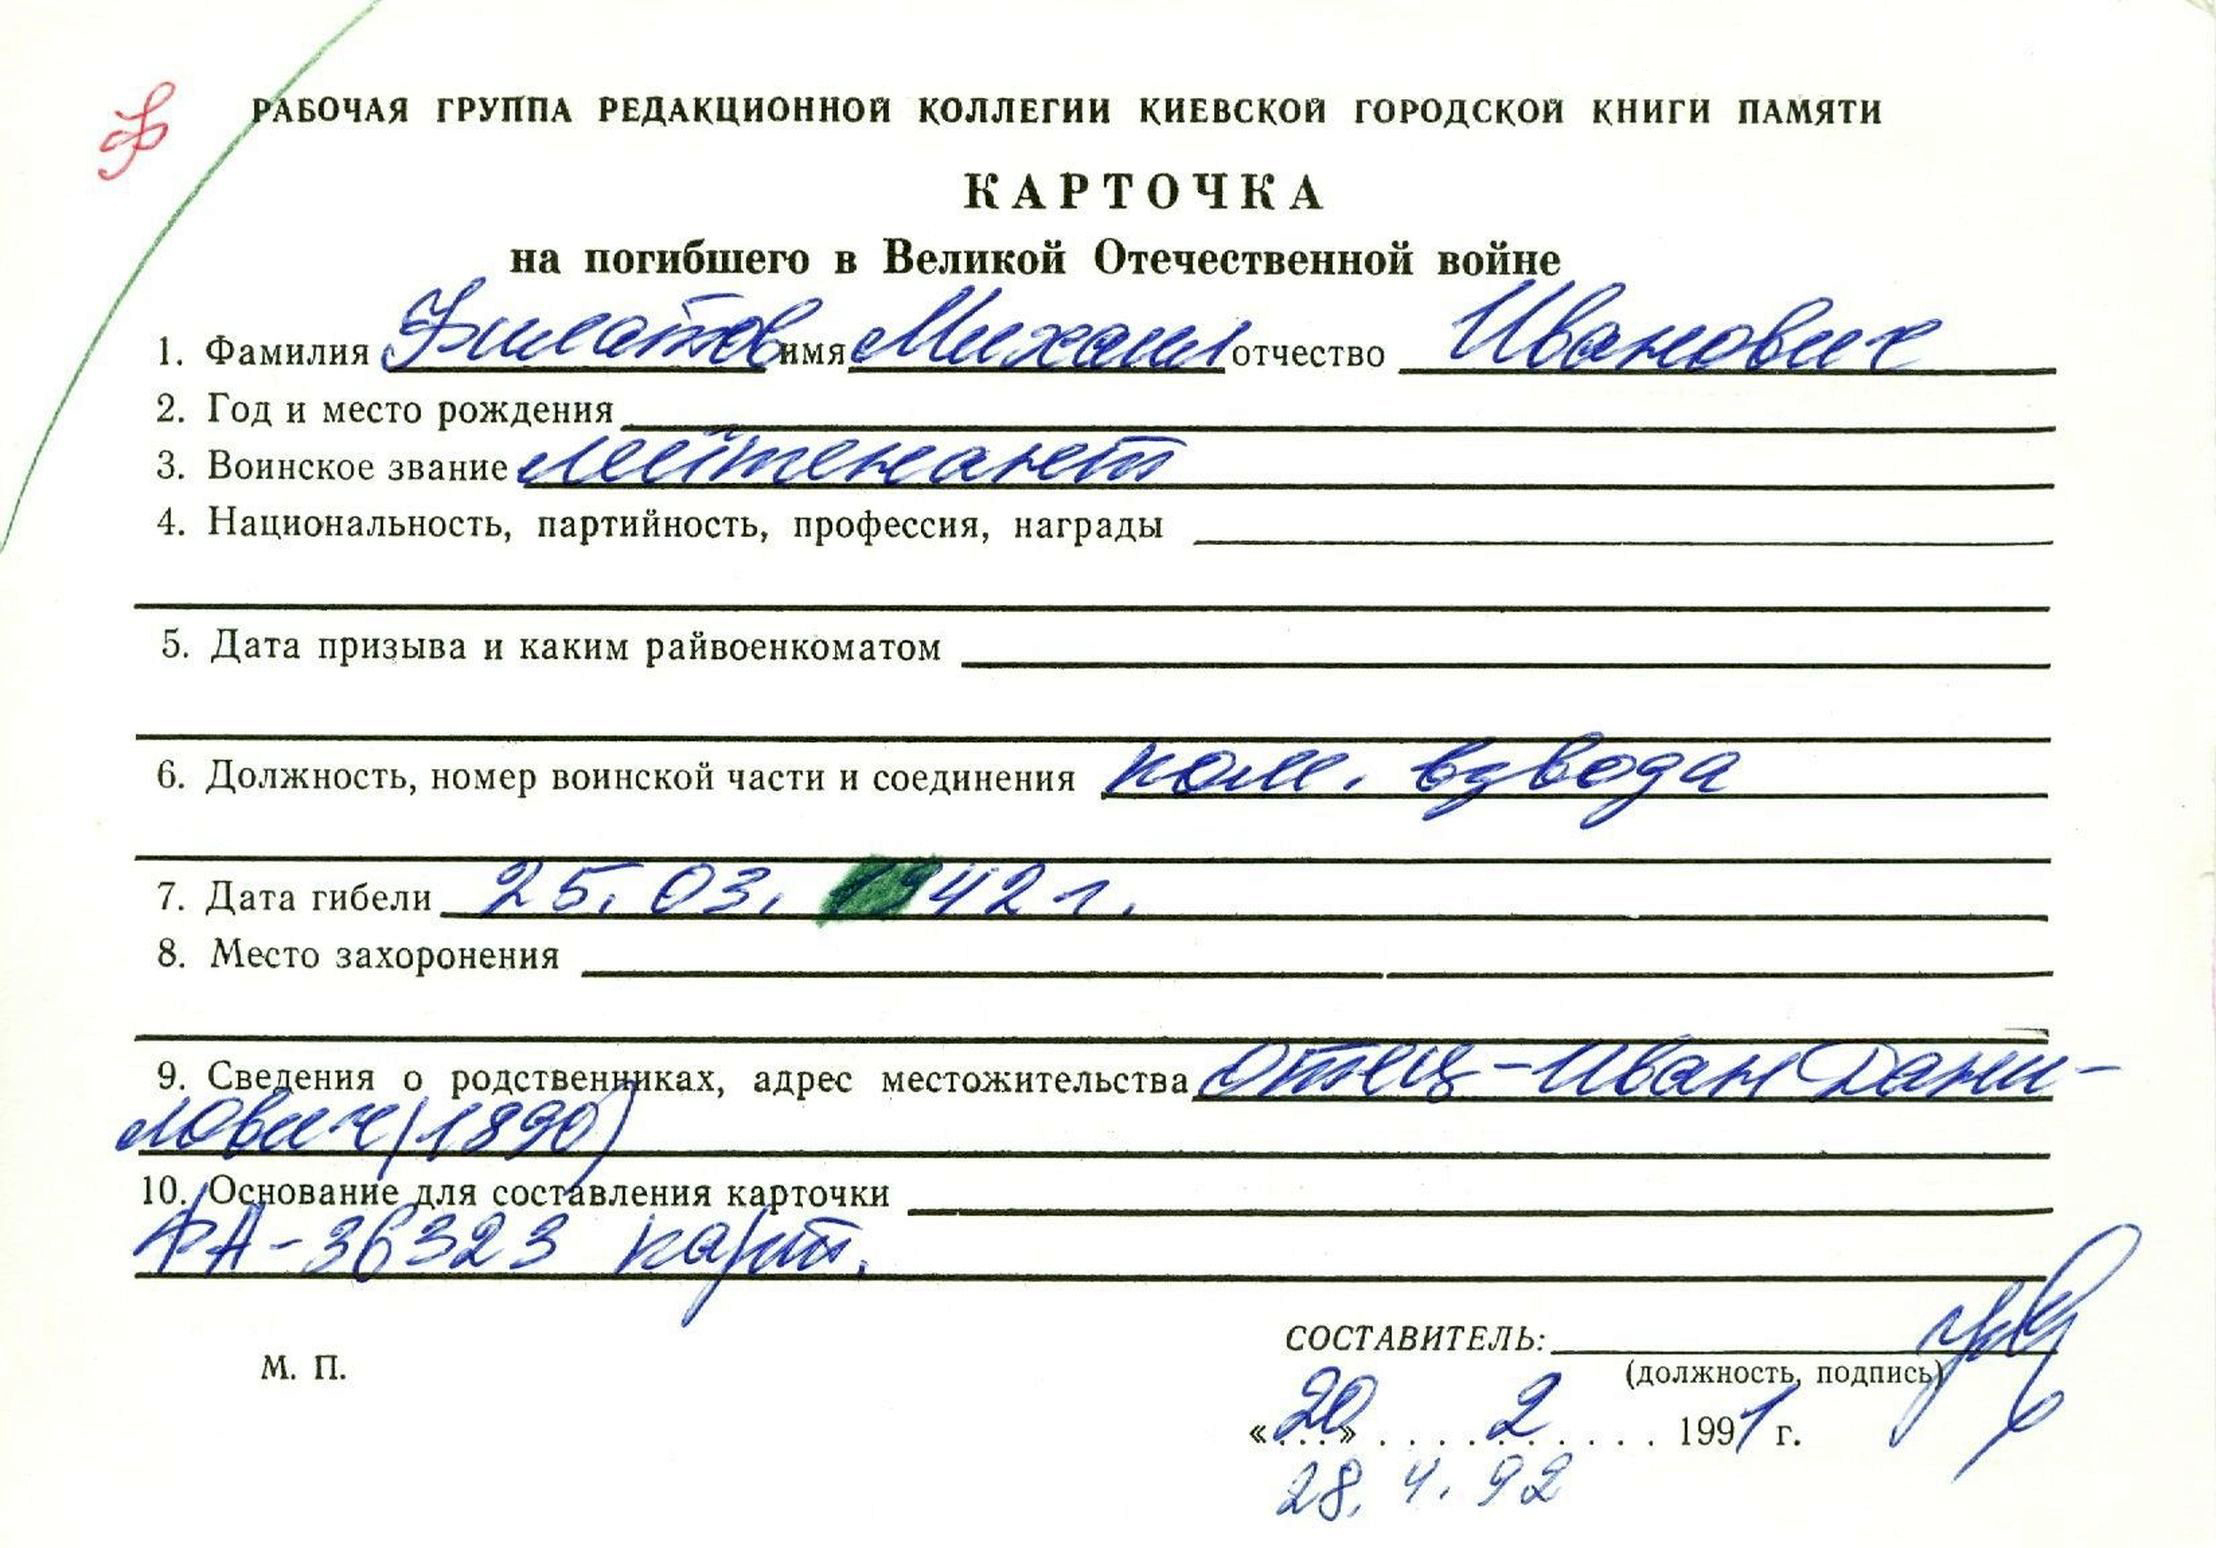 Ф
РАБОЧАЯ ГРУППА РЕДАКЦИОННОЙ КОЛЛЕГИИ КИЕВСКОЙ ГОРОДСКОЙ КНИГИ ПАМЯТИ
КАРТОЧКА
на погибшего в Великой Отечественной войне
1. Фамилия Филатов имя Михаил отчество Иванович
2. Год и место рождения
3. Воинское звание лейтенант
4. Национальность, партийность, профессия, награды
5. Дата призыва и каким райвоенкоматом
6. Должность, номер воинской части и соединения ком. взвода
7. Дата гибели 25.03.1942 г.
8. Место захоронения
9. Сведения о родственниках, адрес местожительства Отец - Иван Дани-
лович (1890)
10. Основание для составления карточки
ФА-36323 карт.
СОСТАВИТЕЛЬ:
М. П.
(должность, подпись)
«20» 2 1991 г.
28.4.92